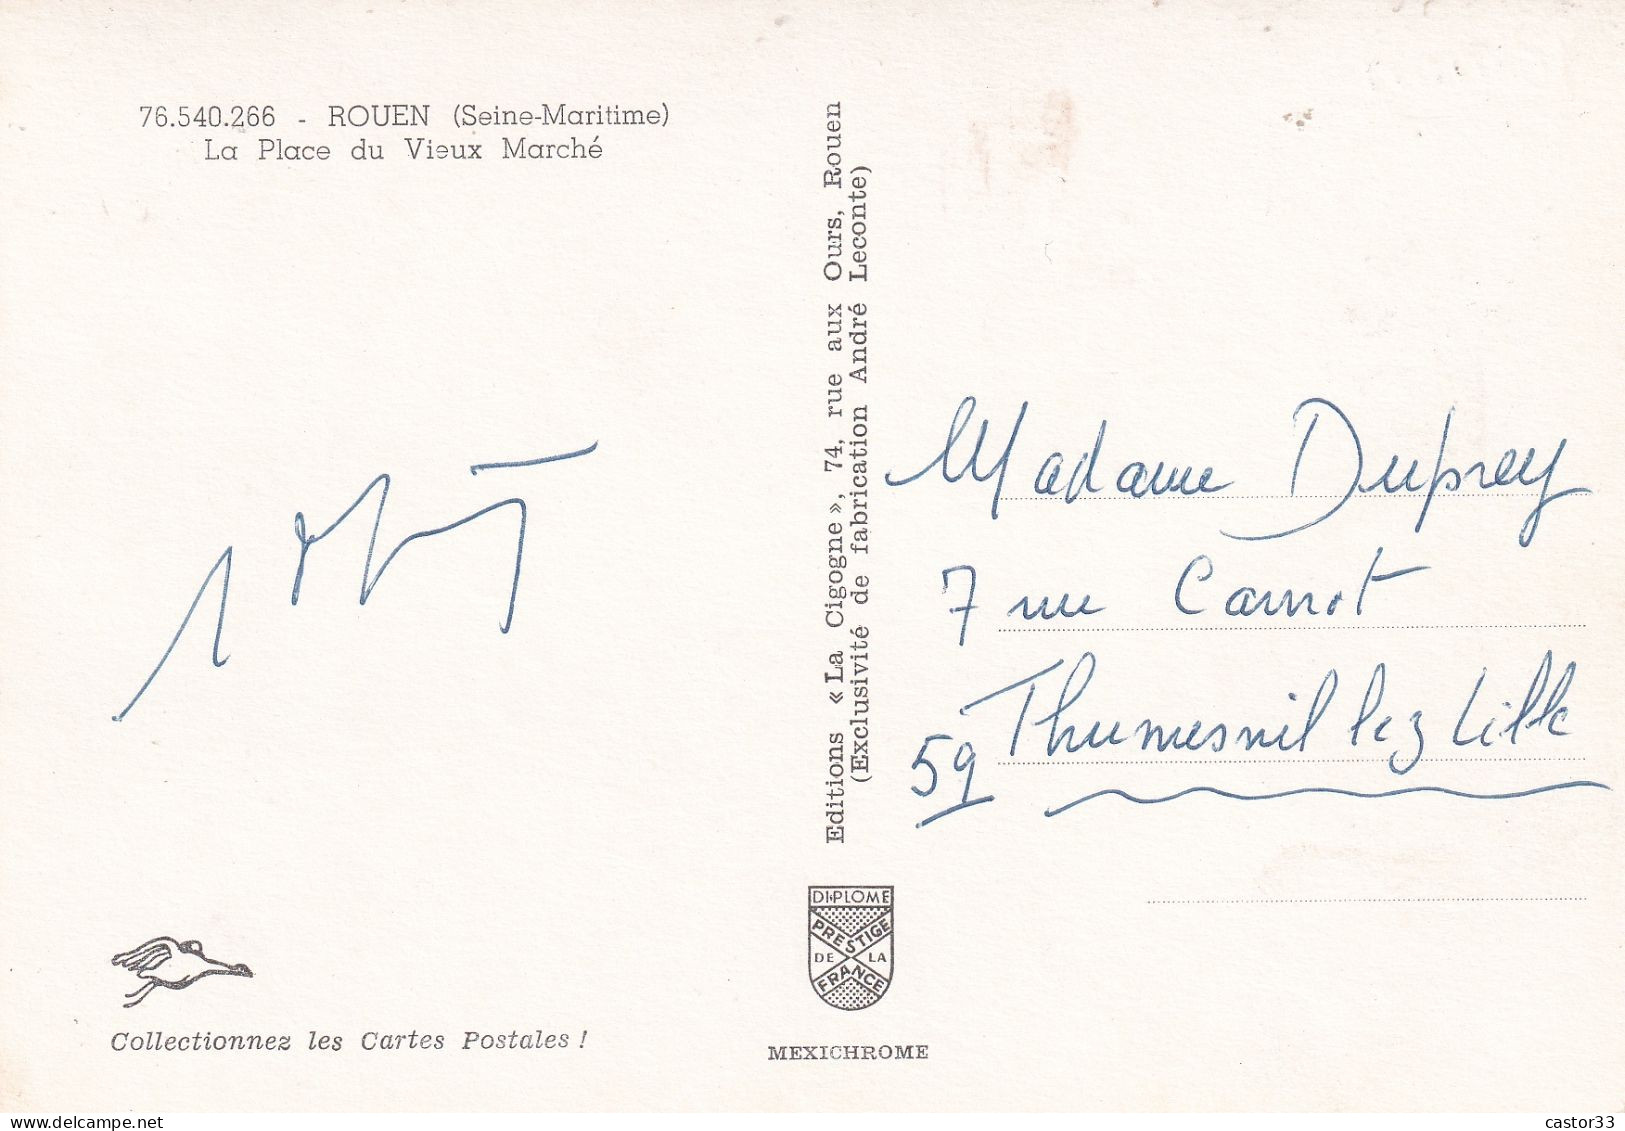 76.540.266 - ROUEN (Seine-Maritime)
La Place du Vieux Marché
Editions « La Cigogne », 74, rue aux Ours, Rouen
(Exclusivité de fabrication André Leconte)
Madame Duprey
7 rue Carnot
59 Thumesnil lez Lille
DIPLOME
PRESTIGE
DE LA
FRANCE
Collectionnez les Cartes Postales !
MEXICHROME
delcampe.net
castor33